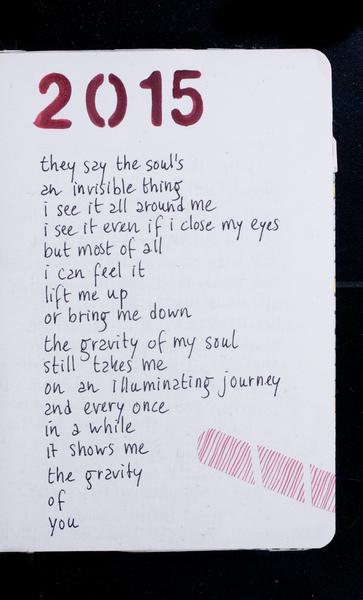 2015
they say the soul's
an invisible thing
i see it all around me
i see it even if i close my eyes
but most of all
i can feel it
lift me up
or bring me down
the gravity of my soul
still takes me
on an illuminating journey
and every once
in a while
it shows me
the gravity
of
you